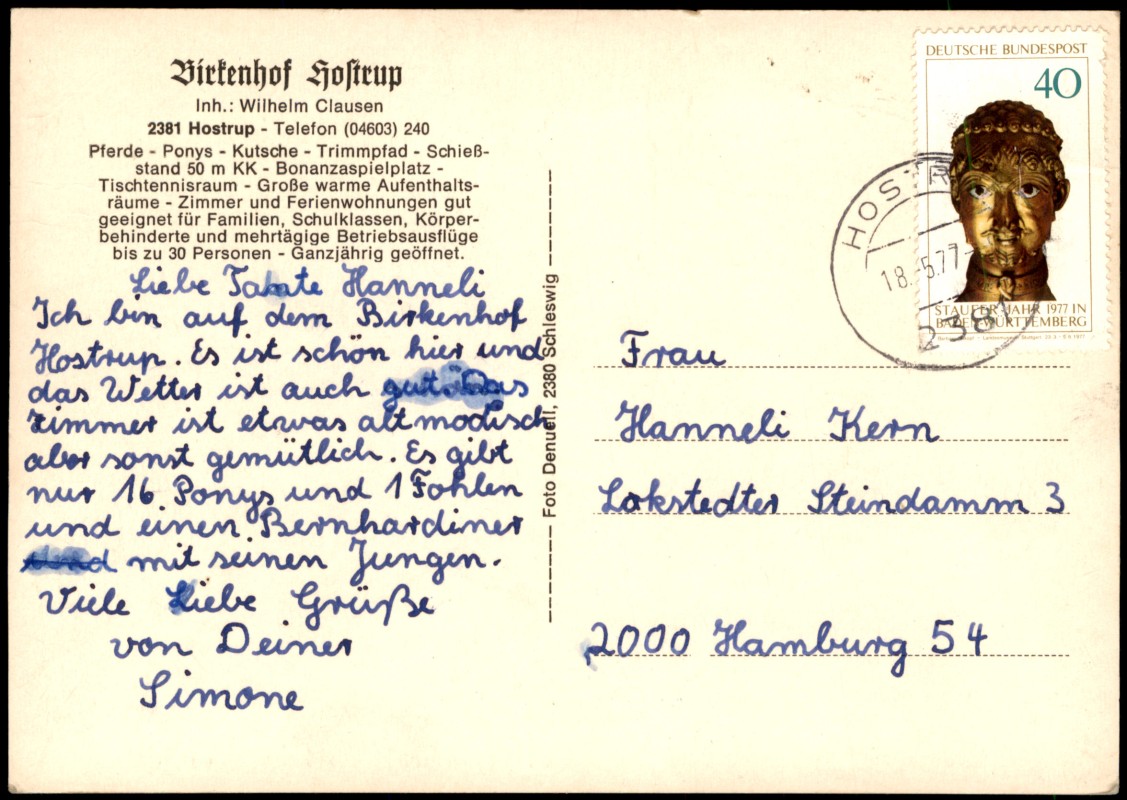 Birkenhof Hostrup
Inh.: Wilhelm Clausen
2381 Hostrup - Telefon (04603) 240
Pferde - Ponys - Kutsche - Trimmpfad - Schieß-
stand 50 m KK - Bonanzaspielplatz -
Tischtennisraum - Große warme Aufenthalts-
räume - Zimmer und Ferienwohnungen gut
geeignet für Familien, Schulklassen, Körper-
behinderte und mehrtägige Betriebsausflüge
bis zu 30 Personen - Ganzjährig geöffnet.
Liebe Tante Hanneli
Ich bin auf dem Birkenhof
Hostrup. Es ist schön hier und
das Wetter ist auch gut. Das
Zimmer ist etwas altmodisch
aber sonst gemütlich. Es gibt
nur 16 Ponys und 1 Fohlen
und einen Bernhardiner
mit seinen Jungen.
Viele Liebe Grüße
von Deiner
Simone
Foto Denuell, 2380 Schleswig
DEUTSCHE BUNDESPOST
40
STAUFER-JAHR 1977 IN
BADEN-WÜRTTEMBERG
HOSTR
18.-5.77
2381
Frau
Hanneli Kern
Lokstedter Steindamm 3
2000 Hamburg 54